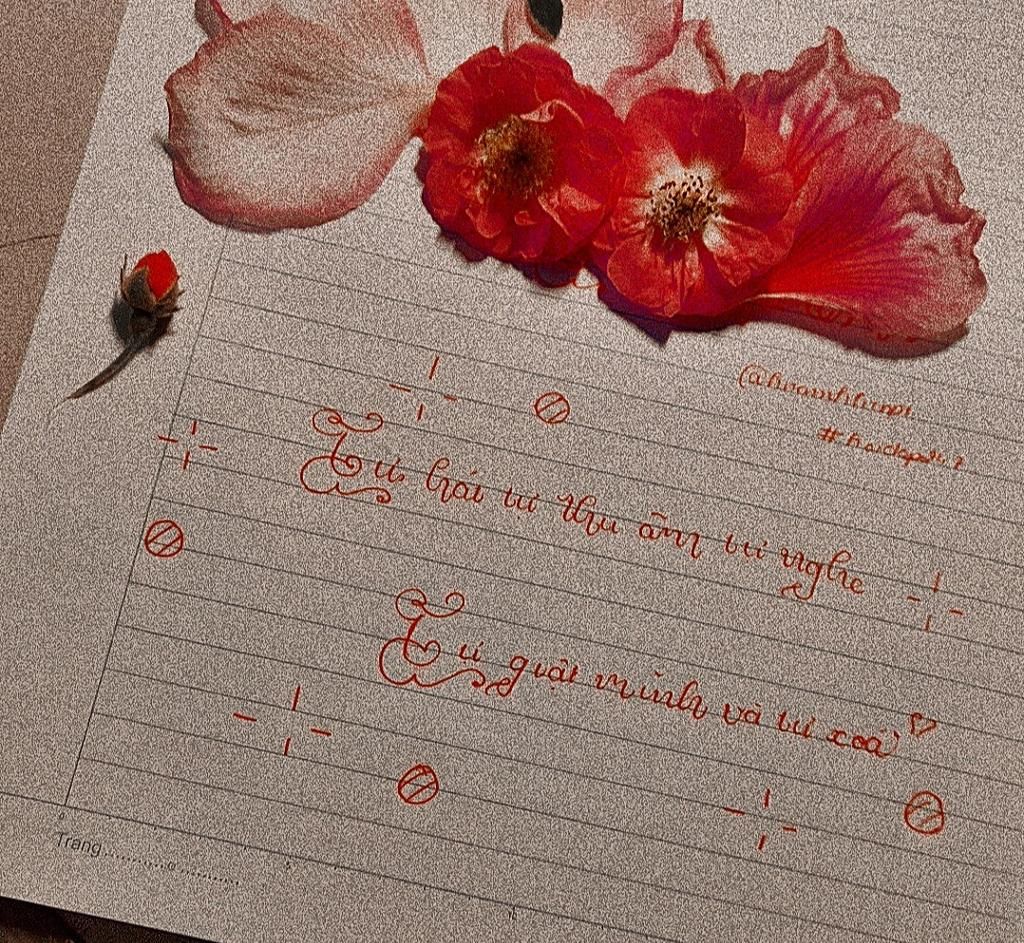 Tự hát tự thu âm tự nghe
Tự quật mình và tự xoá
Trang